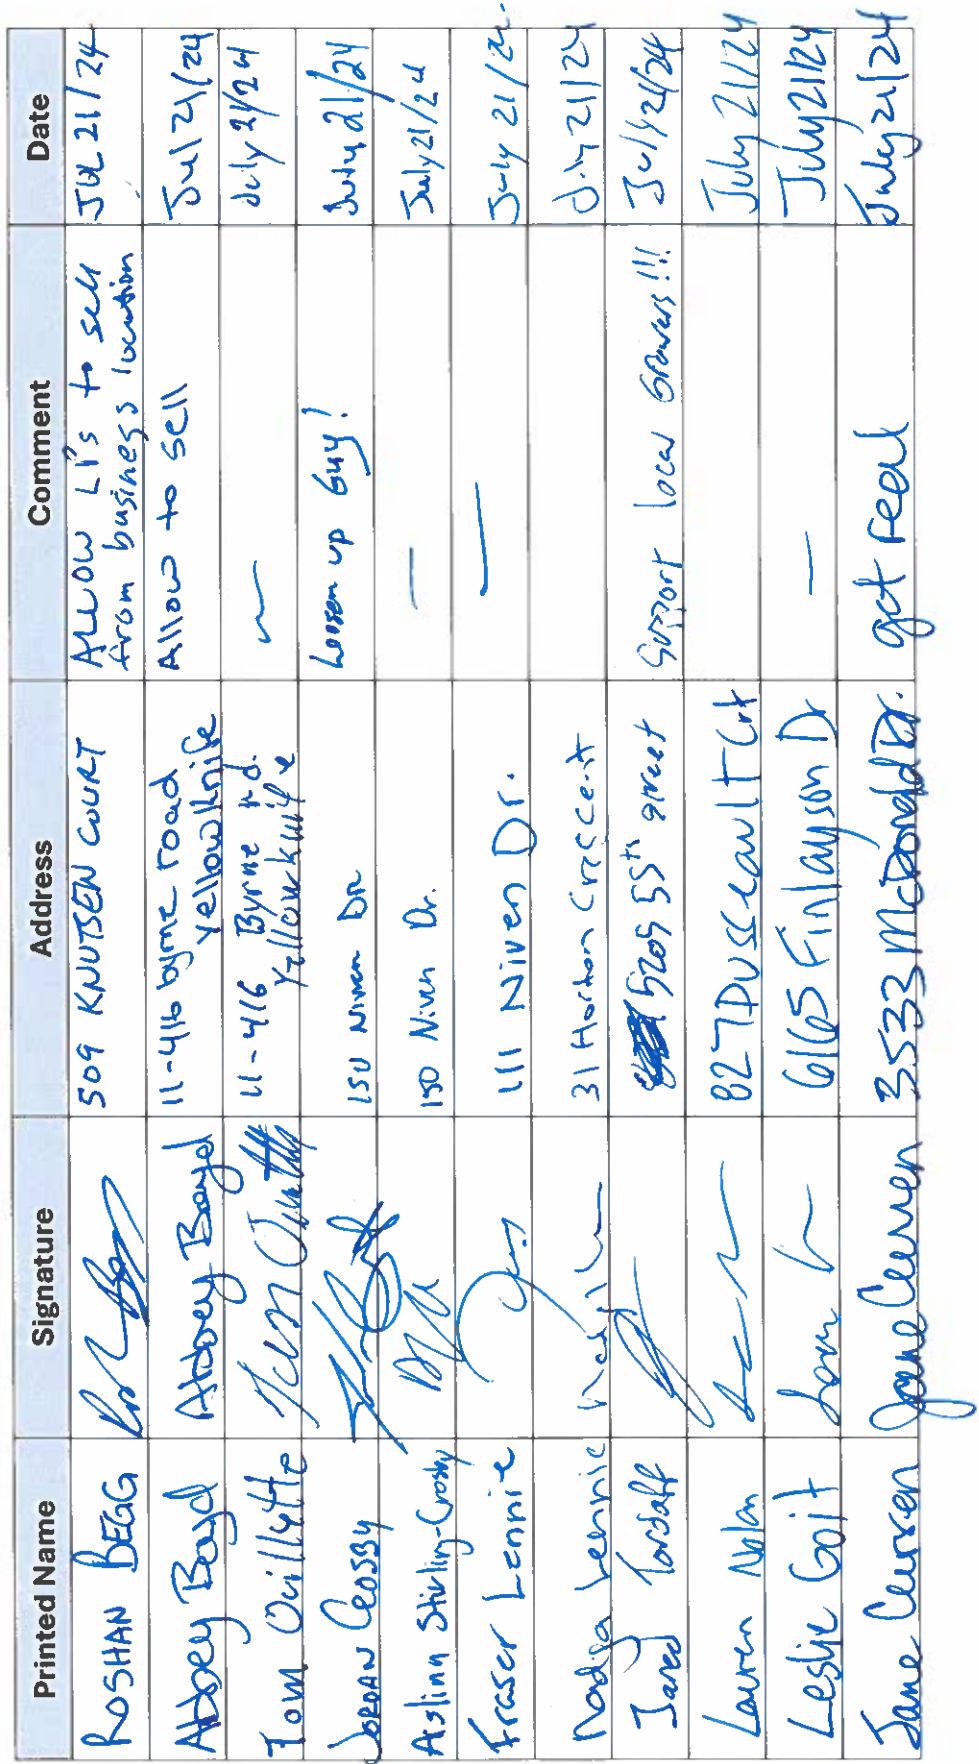 Printed Name Signature Address Comment Date
ROSHAN BEGG 509 KNUTSEN COURT ALLOW LP's to sell JUL 21/24
from business location
Abbey Boyd Abbey Boyd 11-416 byrne road Allow to sell Jul 21/24
Yellowknife
Tom 11-416 Byrne rd. July 21/24
Yellowknife
JORDAN CROSBY 150 Niven DR Loosen up Guy! July 21/24
Aslinn Stirling-Crosby 150 Niven Dr. — July 21/24
Fraser Lennie 111 Niven Dr. — July 21/24
Nadia Lennie 31 Horton Crescent July 21/24
Jared 5209 55th street Support local Growers!!! July 21/24
Lauren Nolan 827 Dusseault Crt July 21/24
Leslie 6165 Finlayson Dr — July 21/24
Jane Jane 3533 McDonald Dr. get real July 21/24